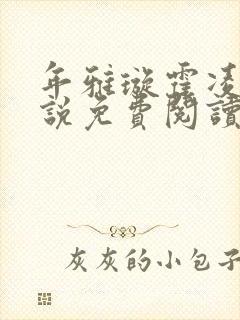 年雅璇霍凌
說免費閱讀
灰灰的小包子